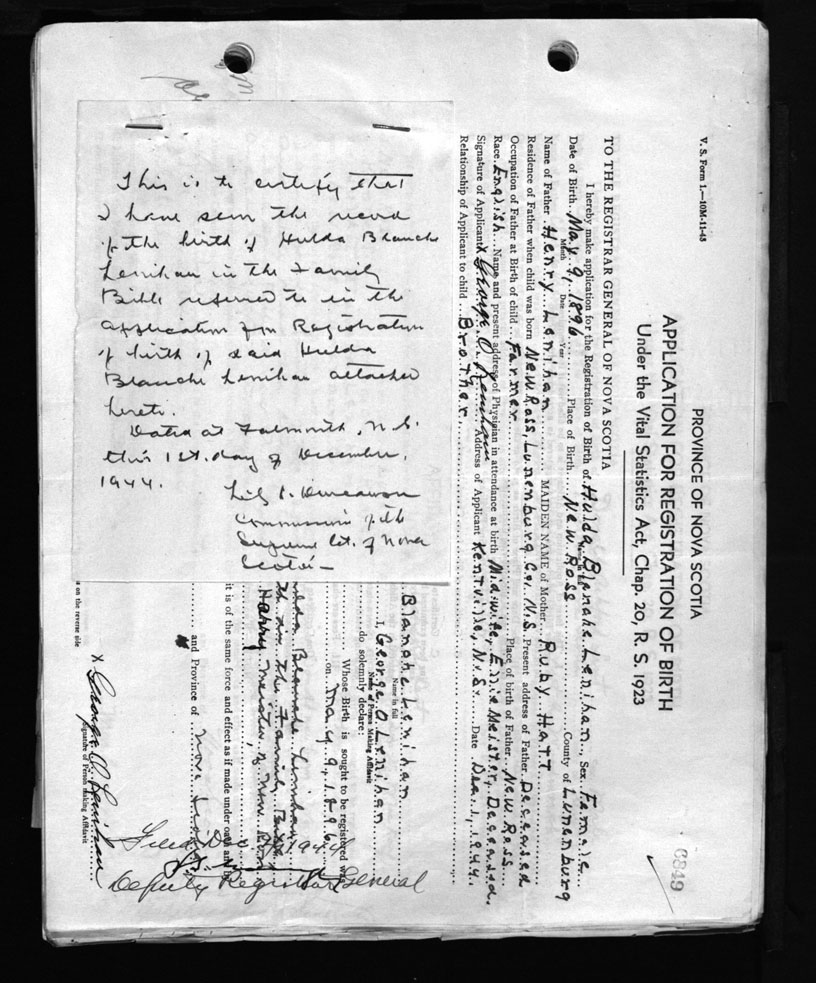 V. S. Form 1.—10M-11-43
PROVINCE OF NOVA SCOTIA
APPLICATION FOR REGISTRATION OF BIRTH
Under the Vital Statistics Act, Chap. 20, R. S. 1923
6849
TO THE REGISTRAR GENERAL OF NOVA SCOTIA
I hereby make application for the Registration of Birth of Hulda Blanche Lenihan, Sex Female
Date of Birth May 9, 1896 Place of Birth New Ross County of Lunenburg
Month Date Year
Name of Father Henry Lenihan MAIDEN NAME of Mother Ruby Hatt
Residence of Father when child was born New Ross, Lunenburg Co., N.S. Present address of Father Deceased
Occupation of Father at Birth of child Farmer Place of birth of Father New Ross
Race English Name and present address of Physician in attendance at birth Midwife, Effie Meister, Deceased.
Signature of Applicant X George O. Lenihan Address of Applicant Kentville, N.S. Date Dec. 1, 1944.
Relationship of Applicant to child Brother
This is to certify that
I have seen the record
of the birth of Hulda Blanche
Lenihan in the Family
Bible referred to in the
application for Registration
of birth of said Hulda
Blanche Lenihan attached
hereto.
Dated at Falmouth, N.S.
this 1st. day of December,
1944.
of the
Supreme Ct. of Nova
Scotia
Blanche Lenihan
Name in full
I, George O. Lenihan
Name of Person Making Affidavit
do solemnly declare:
Whose Birth is sought to be registered was
on May 9, 1896
Blanche Lenihan
in the Family Bible
Harry Meister, New Ross
it is of the same force and effect as if made under oath and by
and Province of Nova Scotia
X George O. Lenihan
Signature of Person making Affidavit
on the reverse side
Filed Dec 1944
Deputy Registrar General